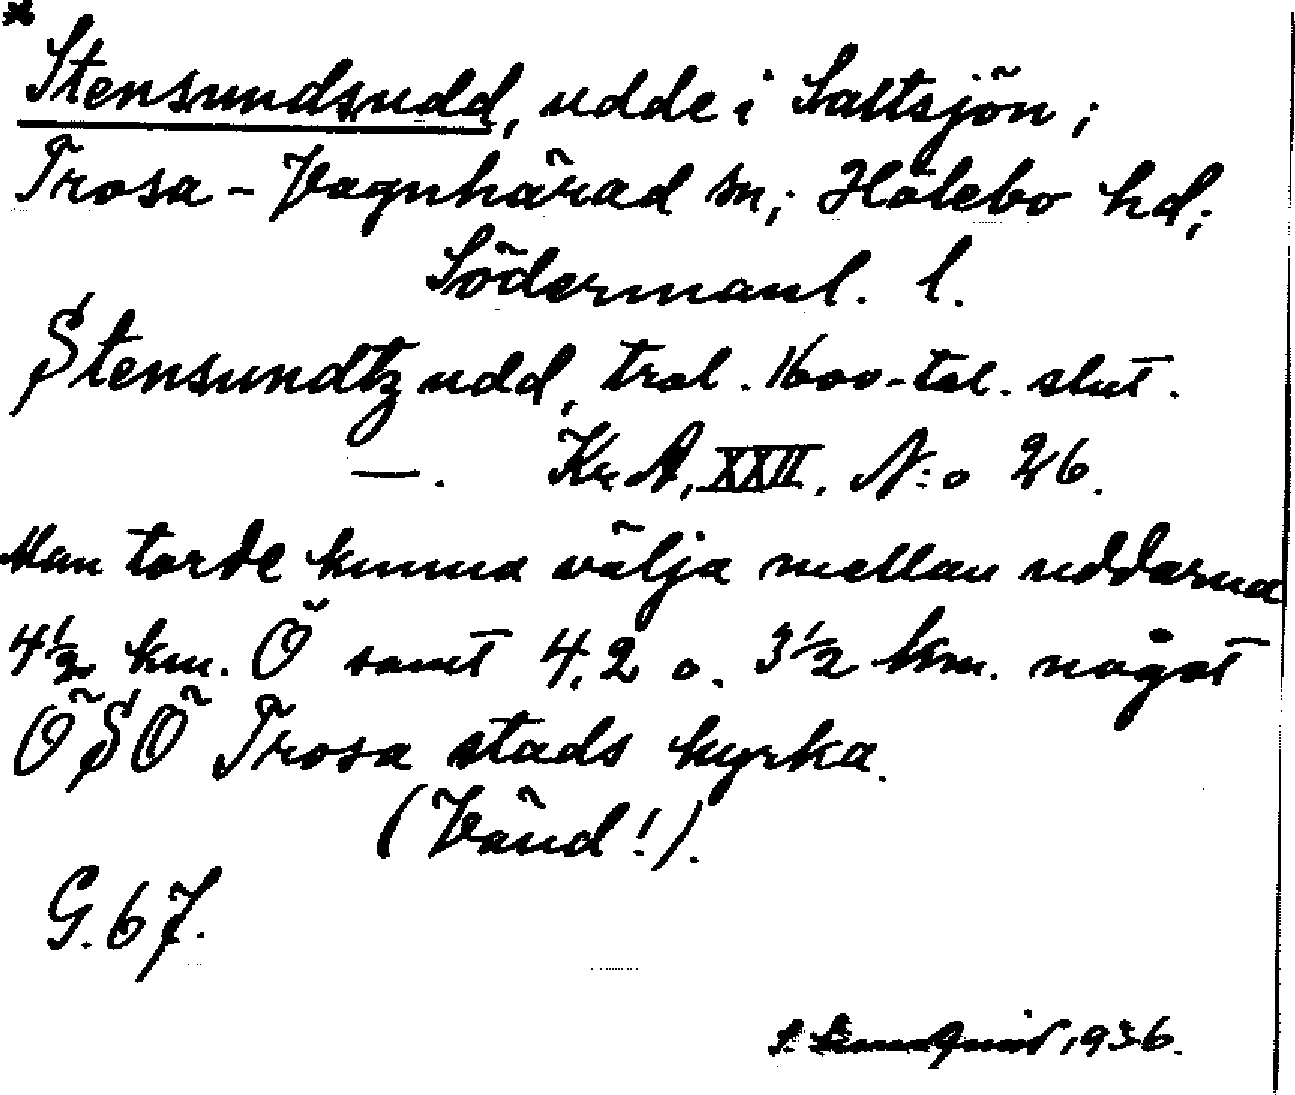 *
Stensundsudd, udde i Saltsjön;
Trosa-Vagnhärad sn; Hölebo hd;
Södermanl. l.
Stensundtz udd, trol. 1600-tal. slut.
—. Kr. A, XXII. N:o 26.
Man torde kunna välja mellan uddarna
4½ km. Ö samt 4,2 o. 3½ km. något
ÖSÖ Trosa stads kyrka.
(Vänd!).
G. 67.
1936.